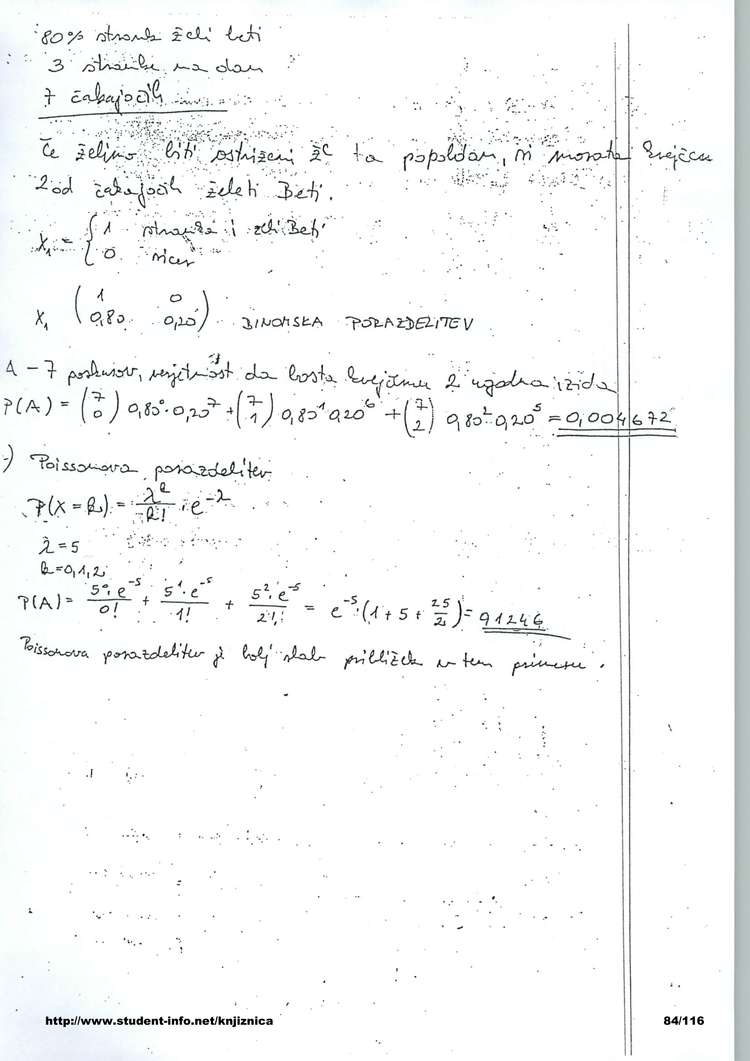 80% strank želi beti
3 stranke na dan
7 čakajočih
Če želimo biti ostriženi že ta popoldan, ni morata kvečjemu
2 od čakajočih želeti Beti.
X₁ = { 1 stranka i želi Beti
0 sicer
X₁ ( 1 0
0,80 0,20 ) BINOMSKA PORAZDELITEV
A - 7 poskusov, verjetnost da bosta kvečjemu 2 ugodna izida
P(A) = (7 0) 0,80⁰·0,20⁷ + (7 1) 0,80¹ 0,20⁶ + (7 2) 0,80² 0,20⁵ = 0,004672
-) Poissonova porazdelitev
P(X = k) = λᵏ/k! · e^-λ
λ = 5
k = 0, 1, 2
P(A) = 5⁰·e⁻⁵/0! + 5¹·e⁻⁵/1! + 5²·e⁻⁵/2! = e⁻⁵·(1 + 5 + 25/2) = 0,1246
Poissonova porazdelitev je bolj slab približek v tem primeru.
http://www.student-info.net/knjiznica 84/116